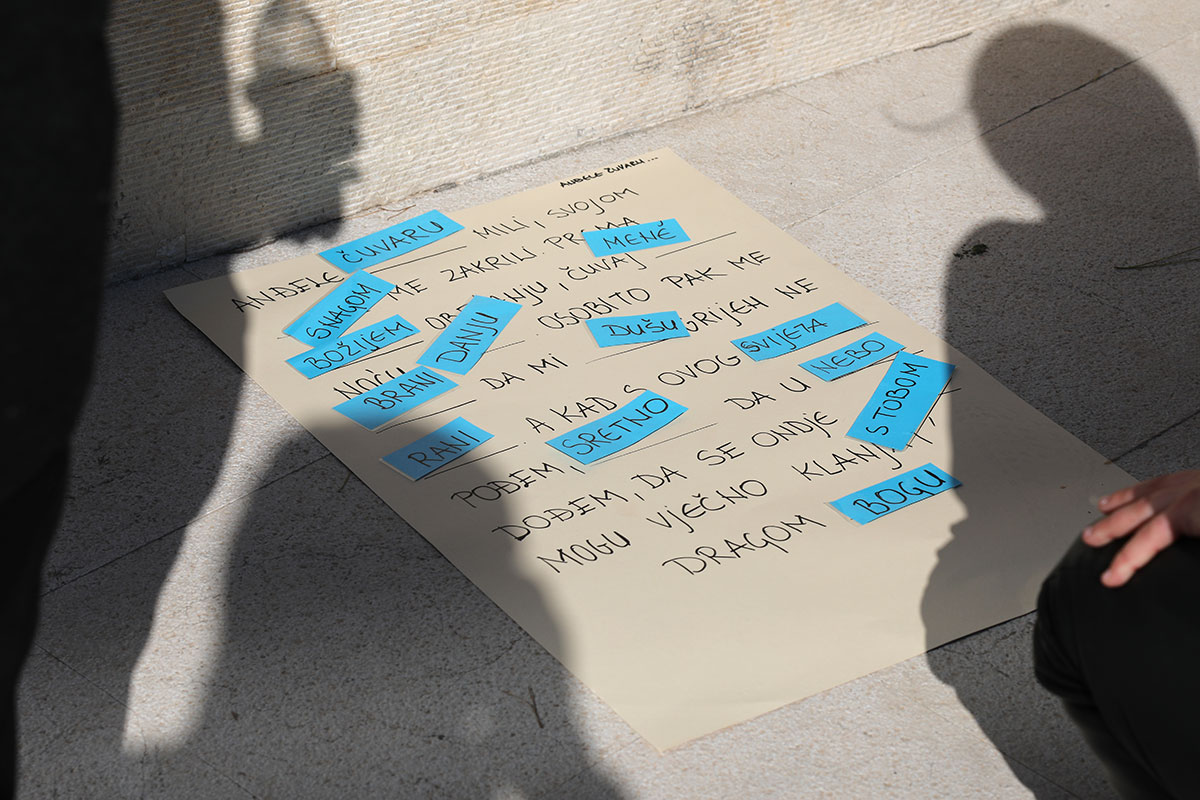 ANĐELE ČUVARU...
ANĐELE ČUVARU MILI, SVOJOM
SNAGOM ME ZAKRILI. PREMA
BOŽIJEM OB ANJU, ČUVAJ MENE
NOĆU DANJU OSOBITO PAK ME
BRANI DA MI DUŠU GRIJEH NE
RANI A KAD S OVOG SVIJETA
POĐEM, SRETNO DA U NEBO
DOĐEM, DA SE ONDJE S TOBOM
MOGU VJEČNO KLANJAT
DRAGOM BOGU